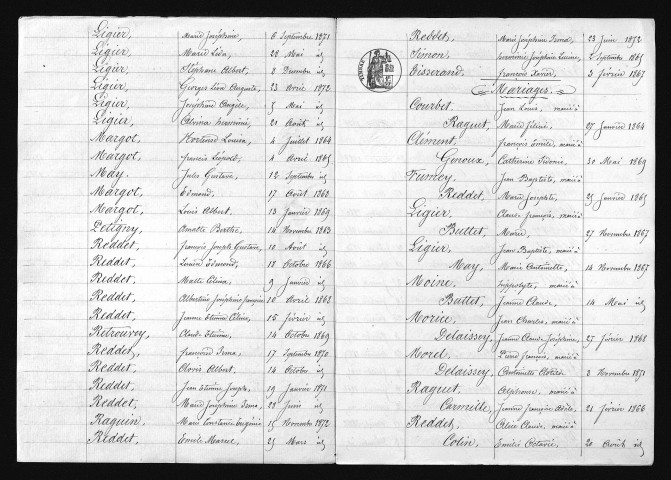 Ligier, Marie Joséphine, 6 Septembre 1871
Ligier, Marie Lida, 28 Mai id
Ligier, Stéphane Albert, 8 Décembre id
Ligier, Georges Léon Auguste, 23 Avril 1872
Ligier, Joséphine Angèle, 5 Mai id
Ligier, Alvina 21 Août id
Margot, Hortense Louisa, 4 Juillet 1864
Margot, francis Léopold, 4 Avril 1865
May, Jules Gustave, 12 Septembre id
Margot, Edmond, 17 Août 1868
Margot, Louis Albert, 13 Janvier 1869
Petigny, Berthe, 14 Novembre 1863
Reddet, François Joseph Gustave, 10 Avril id
Reddet, Louis Edmond, 18 Octobre 1866
Reddet, 9 Janvier id
Reddet, Albertine Joséphine 10 Avril 1868
Reddet, Jeanne Etienne 15 février id
Retrouvey, Claude Etienne, 14 Octobre 1869
Reddet, Irma, 17 Septembre 1870
Reddet, Clovis Albert, 14 Octobre id
Reddet, Jean Etienne Joseph, 19 Janvier 1871
Reddet, Marie Joséphine Irma, 22 Juin id
Raguin, Marie Constance Eugénie 15 Novembre 1872
Reddet, Emile Marie, 25 Mars id
Reddet, Marie Joséphine Irma, 23 Juin 1872
Simon, Joséphine Lucine, 2 Septembre 1865
Tisserand, françois Xavier, 3 février 1867
Mariages.
Courbet, Jean Louis, marié à
Raguet, Marie félicie, 27 Janvier 1864
Clément, françois Emile, marié à
Genoux, Catherine Sidonie, 30 Mai 1869
Fumey, Jean Baptiste, marié à
Reddet, Marie Josephte, 25 Janvier 1865
Ligier, Claude françois, marié à
Buttet, Marie, 27 Novembre 1867
Ligier, Jean Baptiste, marié à
May, Marie Antoinette, 14 Novembre 1867
Moine, hippolyte, marié à
Buttet, Jeanne Claude, 14 Mai id
Morice, Jean Charles, marié à
Delaissey, Jeanne Claude Joséphine, 27 février 1868
Morel, Pierre françois, marié à
Delaissey, Antoinette Clotilde, 8 Novembre 1871
Raguet, Alphonse, marié à
Carmille, Jeanne françoise Adèle, 21 février 1866
Reddet, Claude, marié à
Colin, Emilie Octavie, 20 Août id